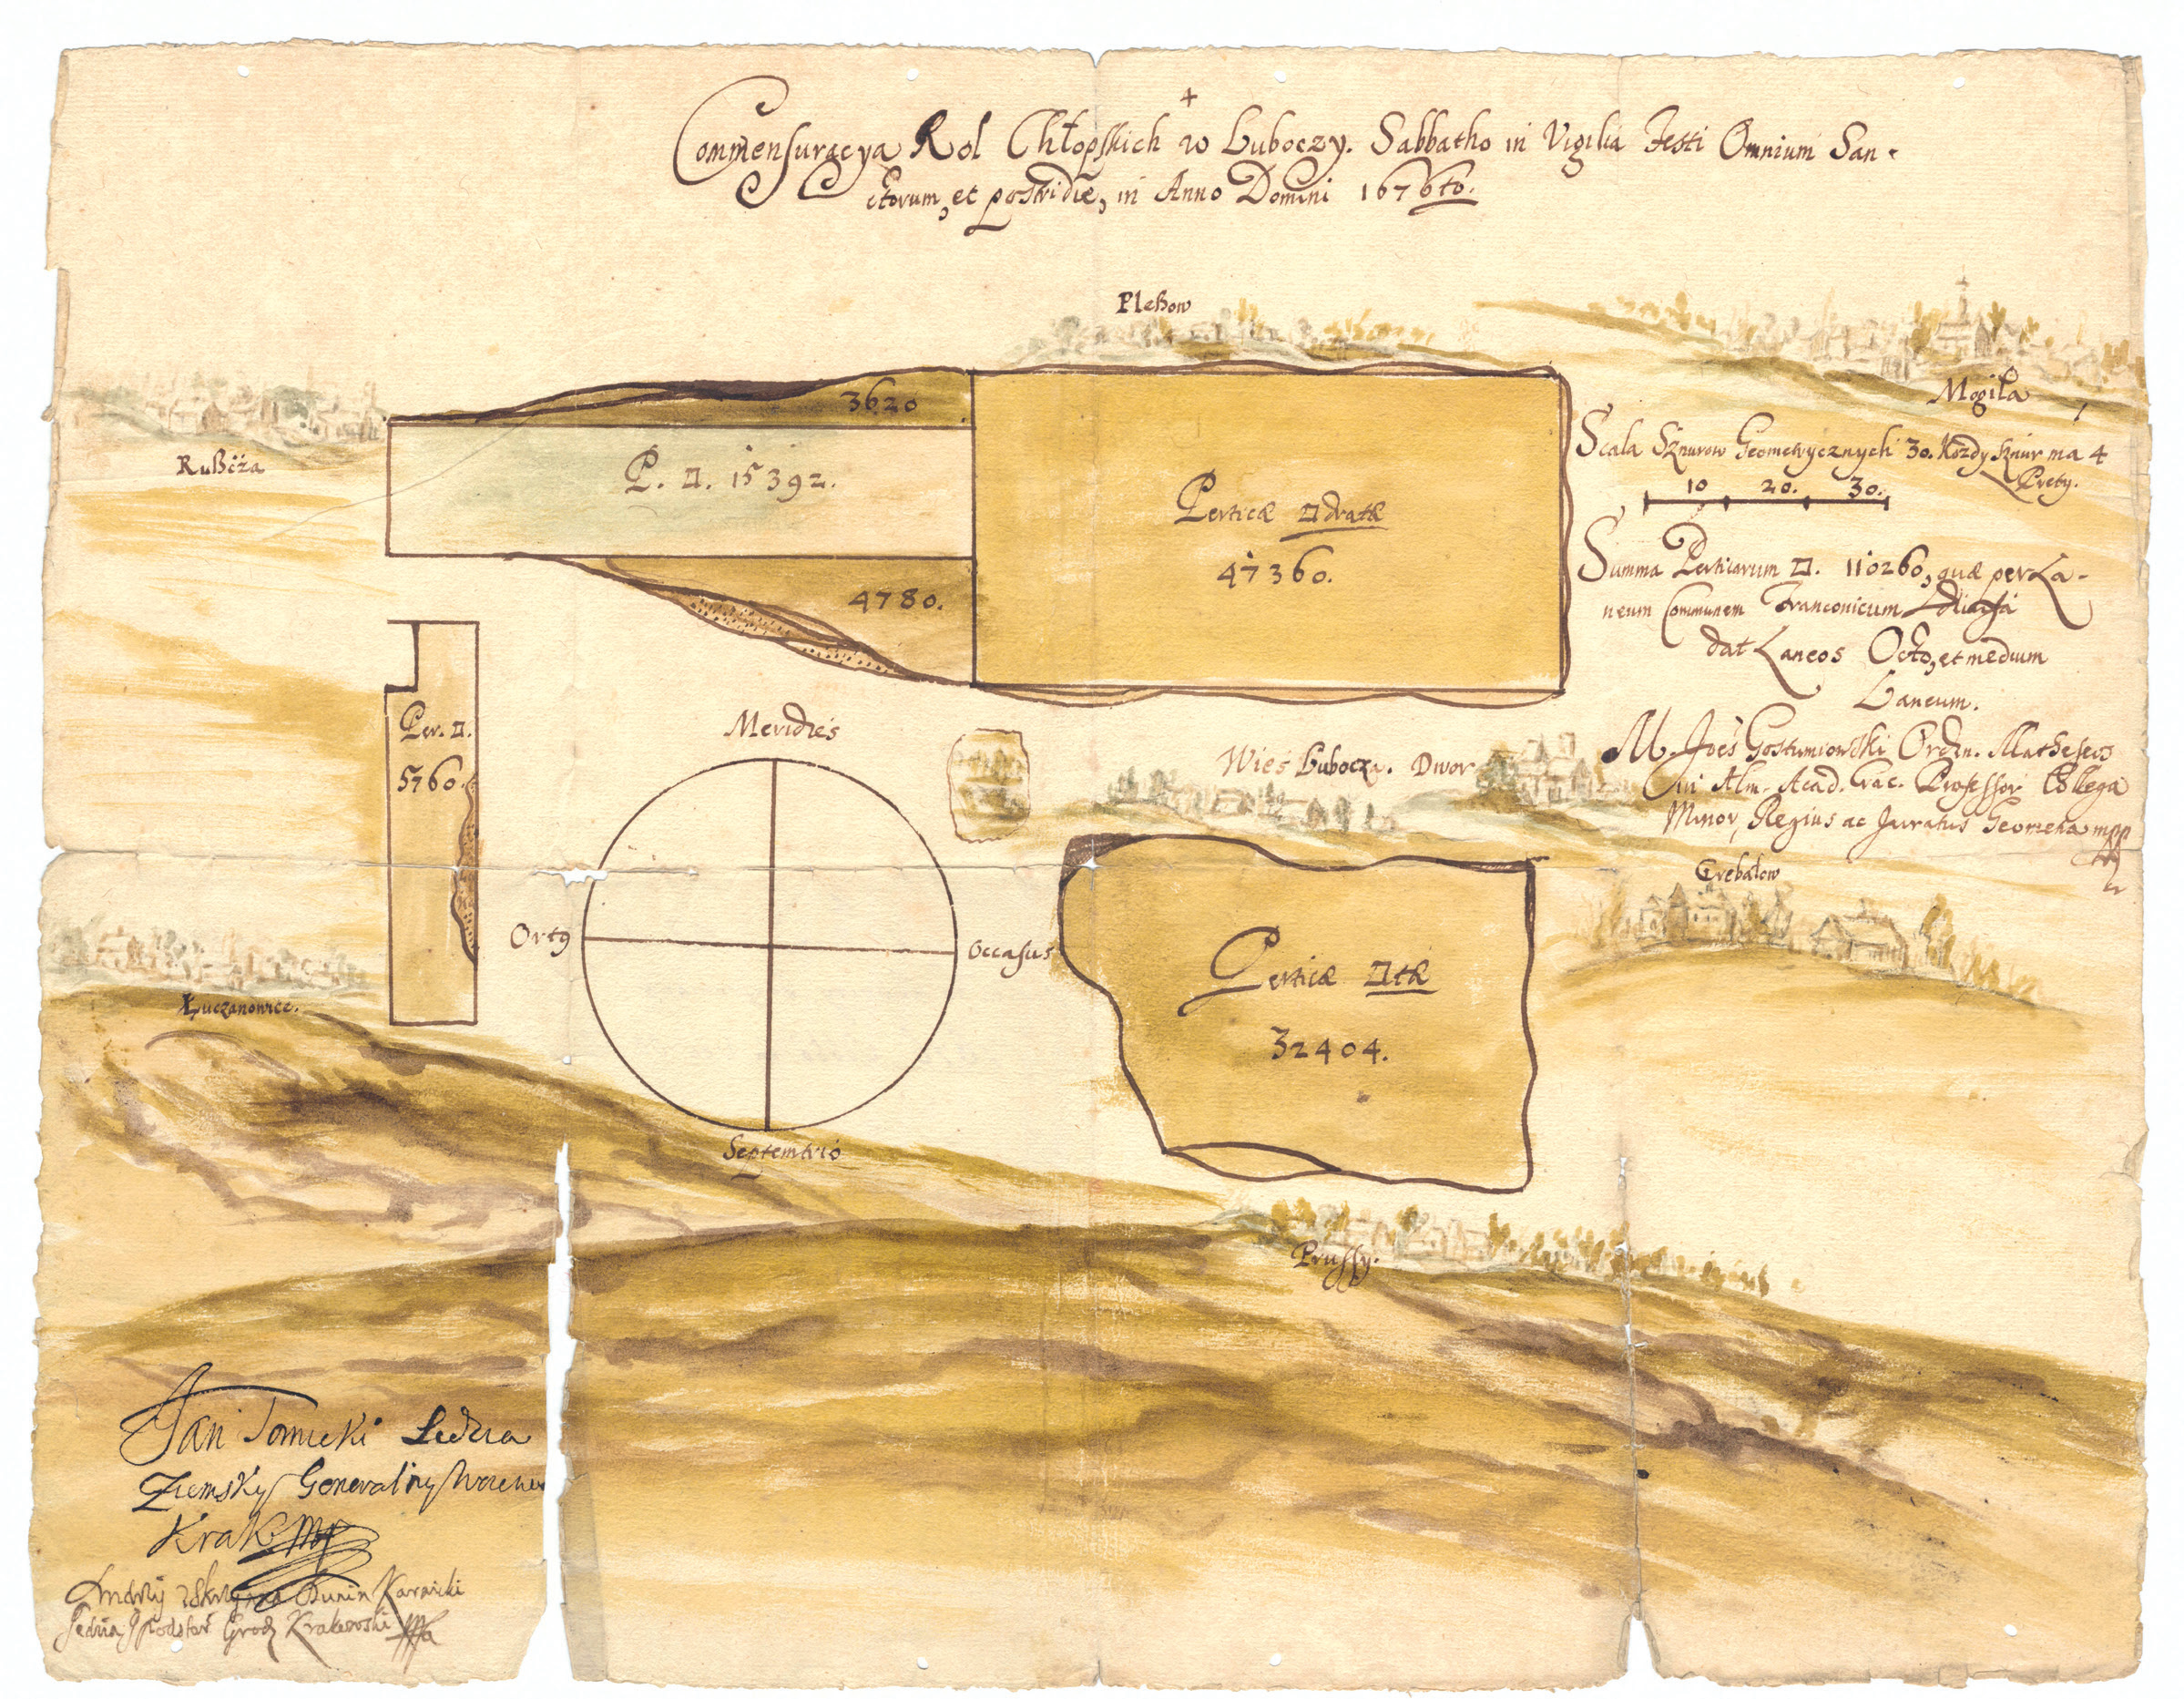 Commensuracya Rol Chłopskich w Luboczy. Sabbatho in Vigilia Festi Omnium San-
ctorum, et postridie, in Anno Domini 1676to.
Pleßow
Mogiła
Rußcża
3620
P. □. 15392.
Perticæ □dratæ
47360.
4780.
Scala Sznurow Geometrycznych 30. Kozdy sznur ma 4
Prety.
10 20. 30.
Summa Perticarum □. 110260, quæ per La-
neum Communem Franconicum
dat Laneos Octo, et medium
Laneum.
M. Joes Gostumiowski Ordin. Matheseos
in Alm. Acad. Crac. Professor Collega
Minor, Regius ac Juratus Geometra mpp
Per. □.
5760.
Meridies
Ortg
Occasus
Septemtrio
Wies Lubocza. Dwor
Crebalow
Perticæ □tæ
32404.
Łuczanowice.
Prussy.
Jan Tomicki Sedzia
Ziemsky Generalny
Krak mp
Andrzij Dunin Karwicki
Sedzia Podstar Grodz Krakowski